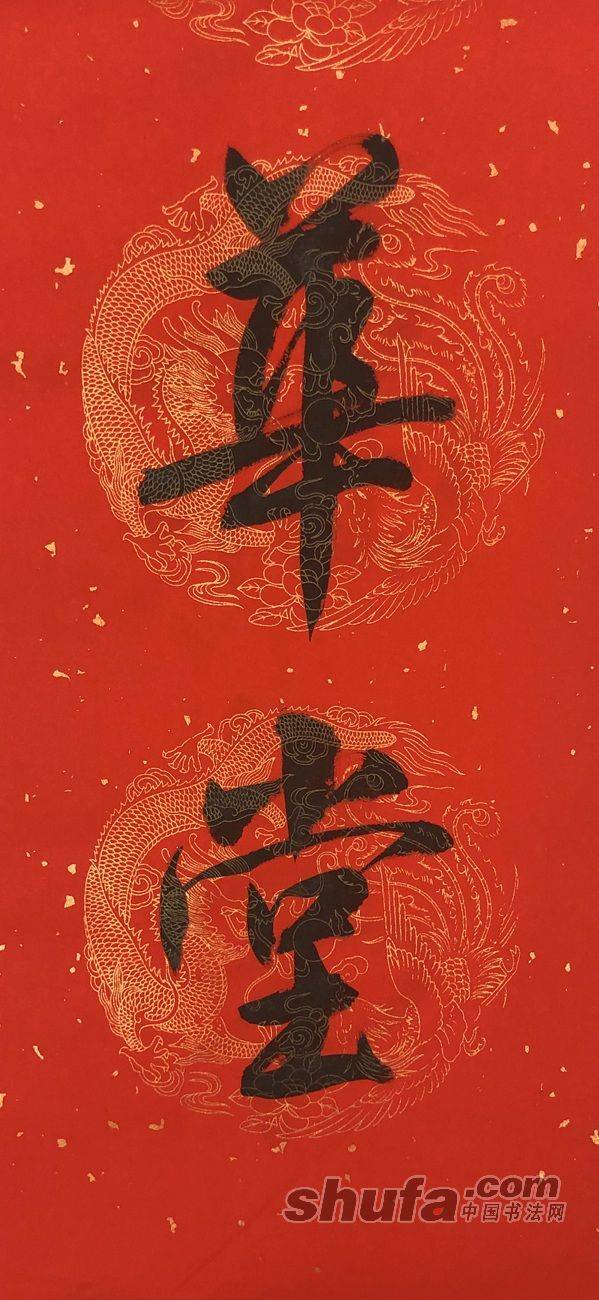 華
堂
shufa.com
中国书法网